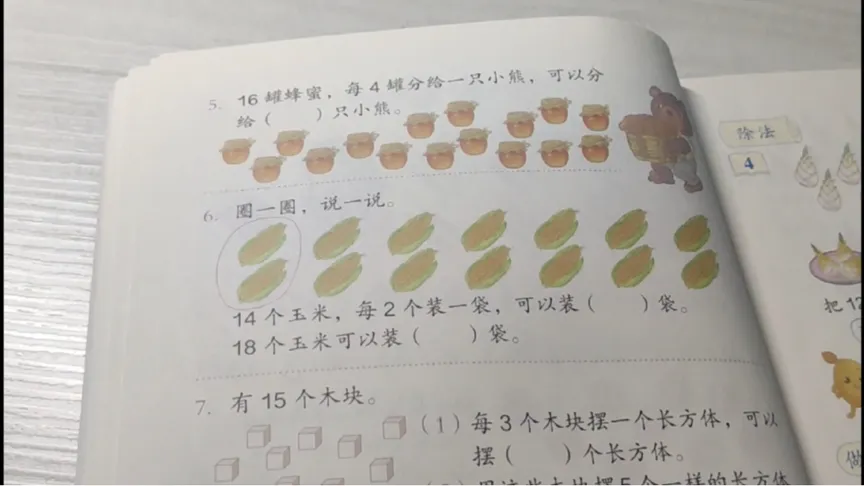 5. 16 罐蜂蜜，每 4 罐分给一只小熊，可以分
给（ ）只小熊。
6. 圈一圈，说一说。
14 个玉米，每 2 个装一袋，可以装（ ）袋。
18 个玉米可以装（ ）袋。
7. 有 15 个木块。
（1）每 3 个木块摆一个长方体，可以
摆（ ）个长方体。
用这些木块摆 5 个一样的长方体
除法
4
把 12
做